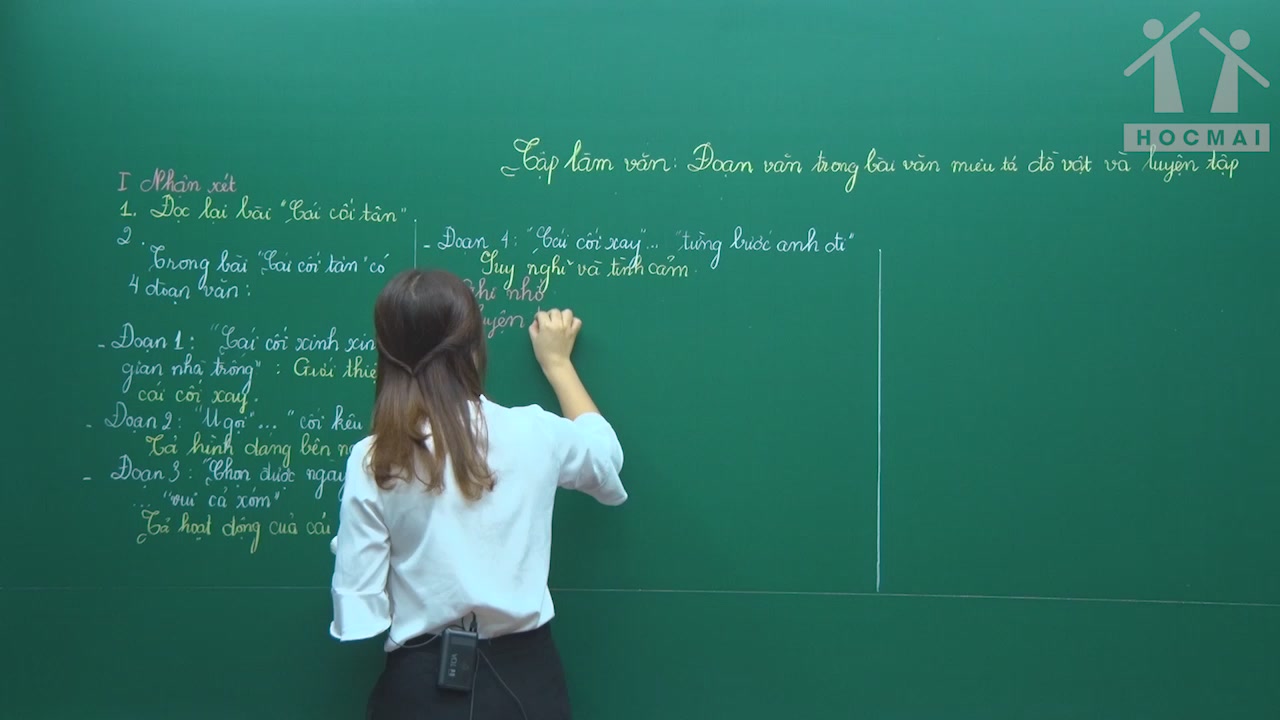 HOCMAI
Tập làm văn: Đoạn văn trong bài văn miêu tả đồ vật và luyện tập
I Nhận xét
1. Đọc lại bài "Cái cối tân"
2.
Trong bài "Cái cối tân" có
4 đoạn văn:
- Đoạn 1: "Cái cối xinh
gian nhà trống" : Giới
cái cối xay.
- Đoạn 2: "U gọi"... "cối kêu
Tả hình dáng bên
- Đoạn 3: "Chọn được ngày
... "vui cả xóm"
Tả hoạt động của cái
- Đoạn 4: "Cái cối xay"... "từng bước anh đi"
Suy nghĩ và tình cảm.
nhớ